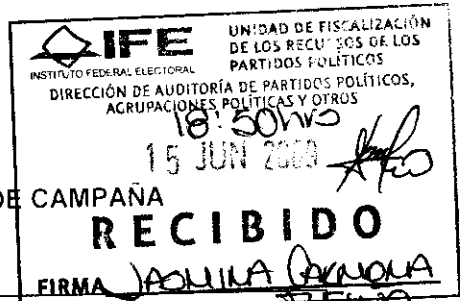 IFE
INSTITUTO FEDERAL ELECTORAL
UNIDAD DE FISCALIZACIÓN
DE LOS RECURSOS DE LOS
PARTIDOS POLÍTICOS
DIRECCIÓN DE AUDITORÍA DE PARTIDOS POLÍTICOS,
AGRUPACIONES POLÍTICAS Y OTROS
18:50hrs
15 JUN
DE CAMPAÑA
RECIBIDO
FIRMA